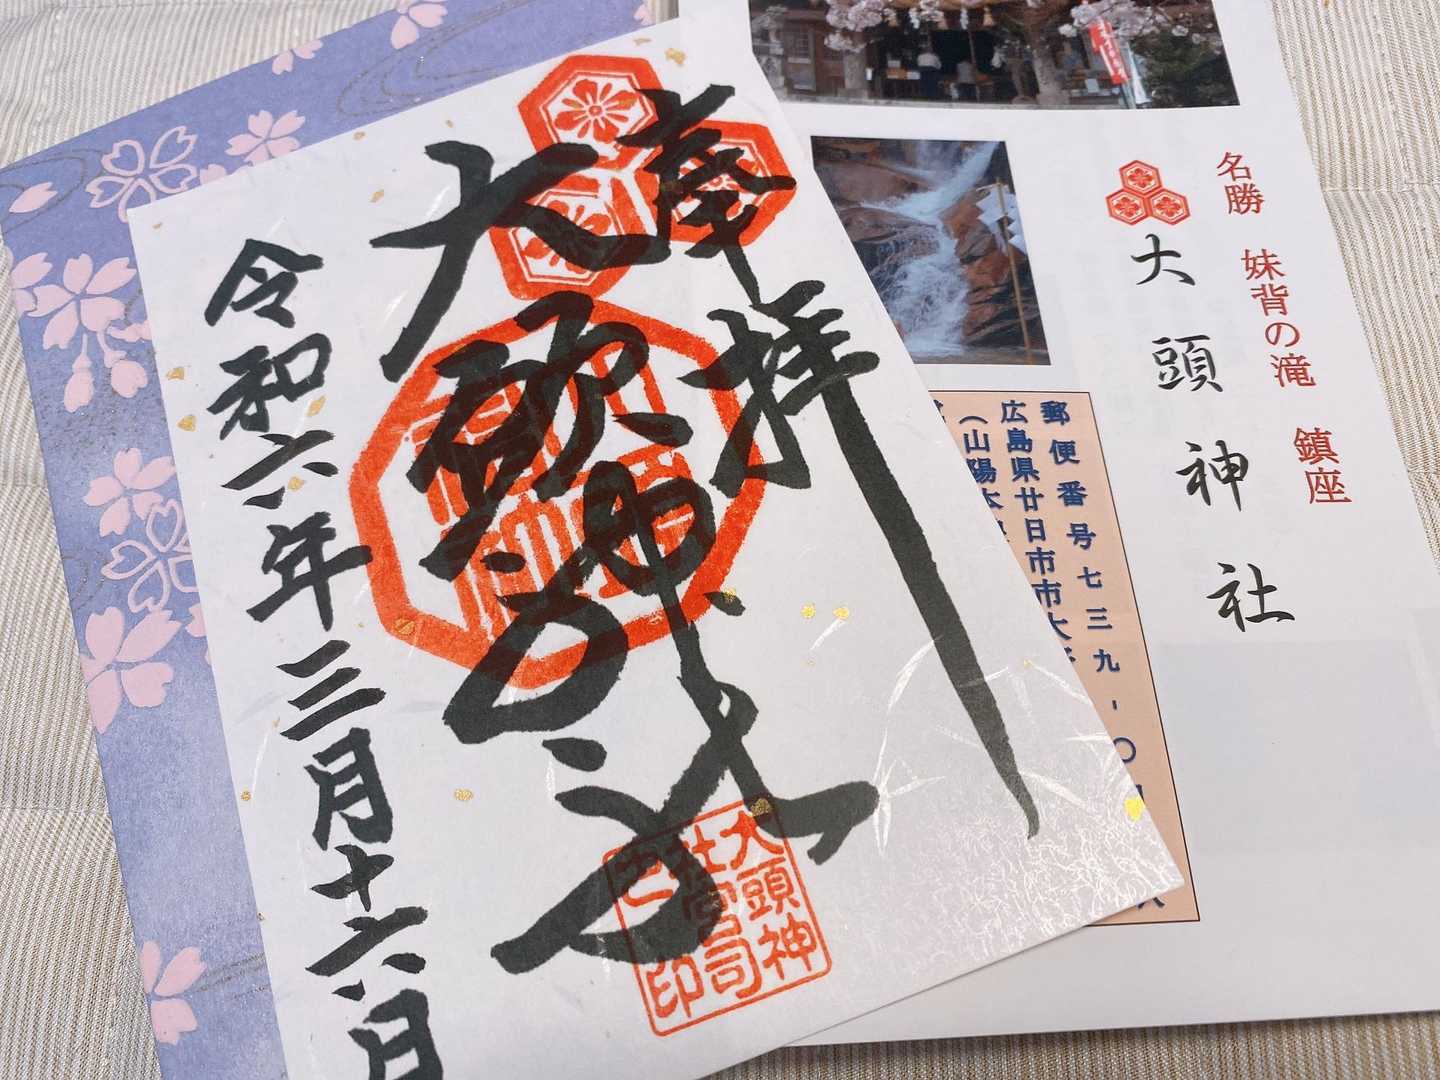 名勝 妹背の滝 鎮座
大頭神社
郵便番号七三九-〇
広島県廿日市市大
(山陽本
奉拝
大頭神社
令和六年三月十六日
大頭神
社宮司
之印